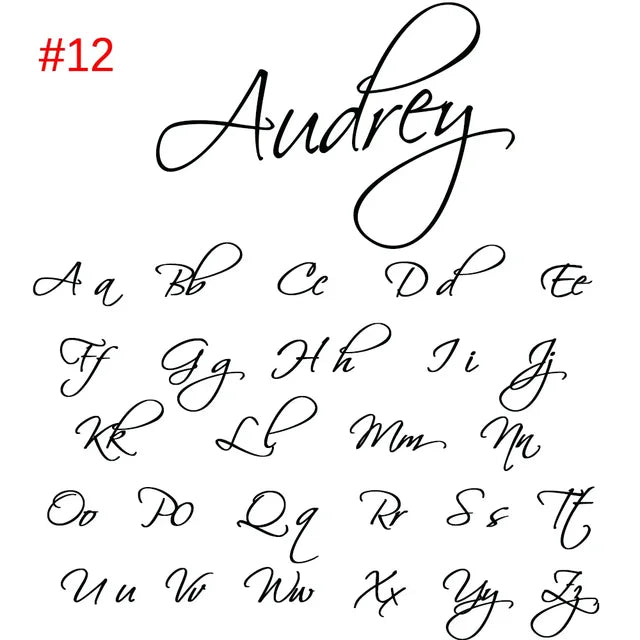 #12
Audrey
A a Bb Cc D d Ee
Ff G g H h I i Jj
Kk L l Mm Nn
Oo PO Q q Rr S s Tt
U u Vv Ww Xx Yy Zz